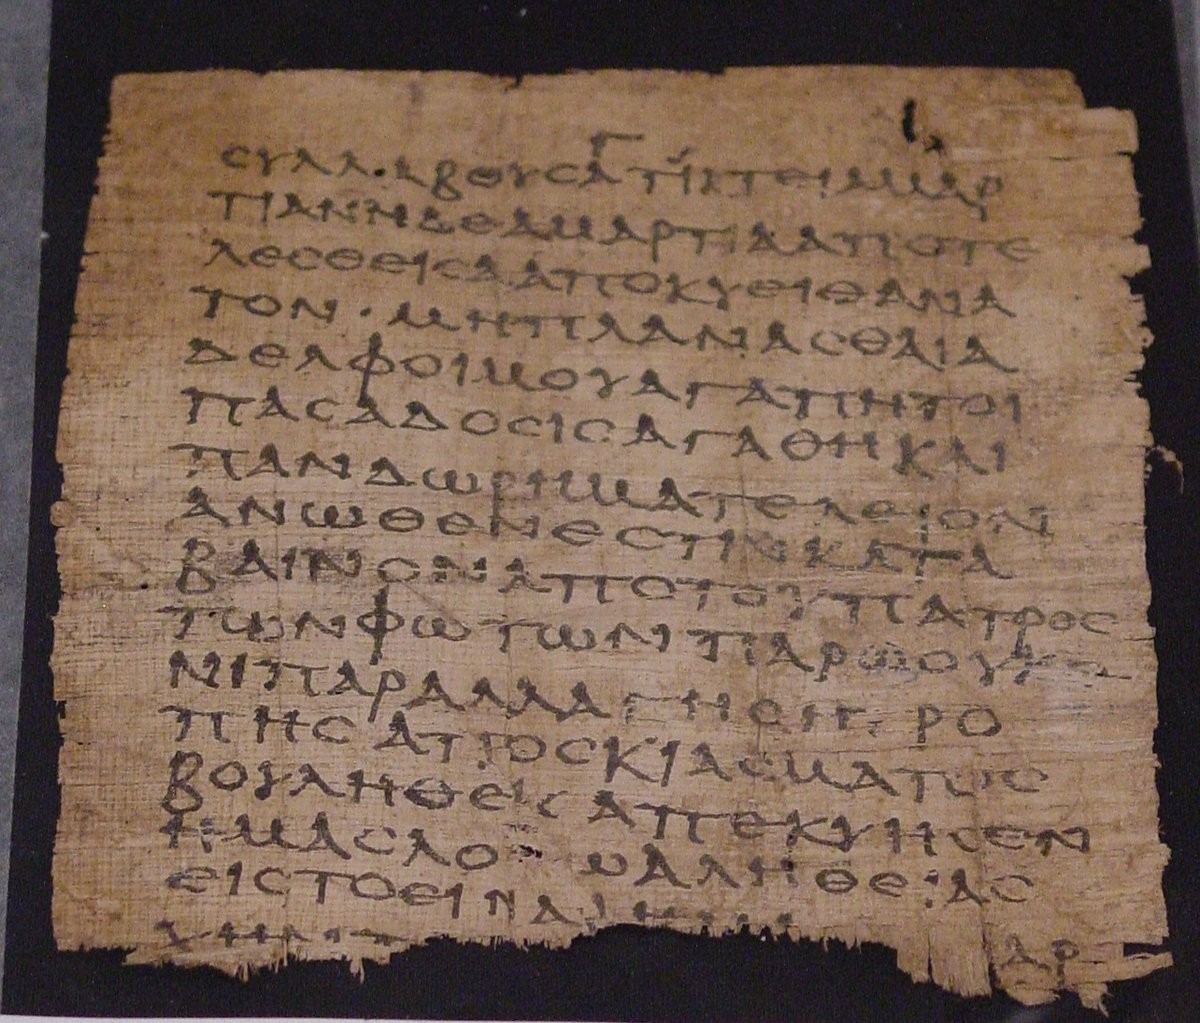 Γ
ϹΥΛΛΑΒΟΥϹΑΤΙΚΤΕΙΑΜΑΡ
ΤΙΑΝΗΔΕΑΜΑΡΤΙΑΑΠΟΤΕ
ΛΕϹΘΕΙϹΑΑΠΟΚΥΕΙΘΑΝΑ
ΤΟΝ · ΜΗΠΛΑΝΑϹΘΑΙΑ
ΔΕΛΦΟΙΜΟΥΑΓΑΠΗΤΟΙ
ΠΑϹΑΔΟϹΙϹΑΓΑΘΗΚΑΙ
ΠΑΝΔΩΡΗΜΑΤΕΛΕΙΟΝ
ΑΝΩΘΕΝΕϹΤΙΝΚΑΤΑ
ΒΑΙΝΟΝΑΠΟΤΟΥΠΑΤΡΟϹ
ΤΩΝΦΩΤΩΝΠΑΡΩΟΥΚΕ
ΝΙΠΑΡΑΛΛΑΓΗϹΗΤΡΟ
ΠΗϹΑΠΟϹΚΙΑϹΜΑΤΟϹ
ΒΟΥΛΗΘΕΙϹΑΠΕΚΥΗϹΕΝ
ΗΜΑϹΛΟΓΩΑΛΗΘΕΙΑϹ
ΕΙϹΤΟΕΙΝΑΙΗΜ
ΑΡ